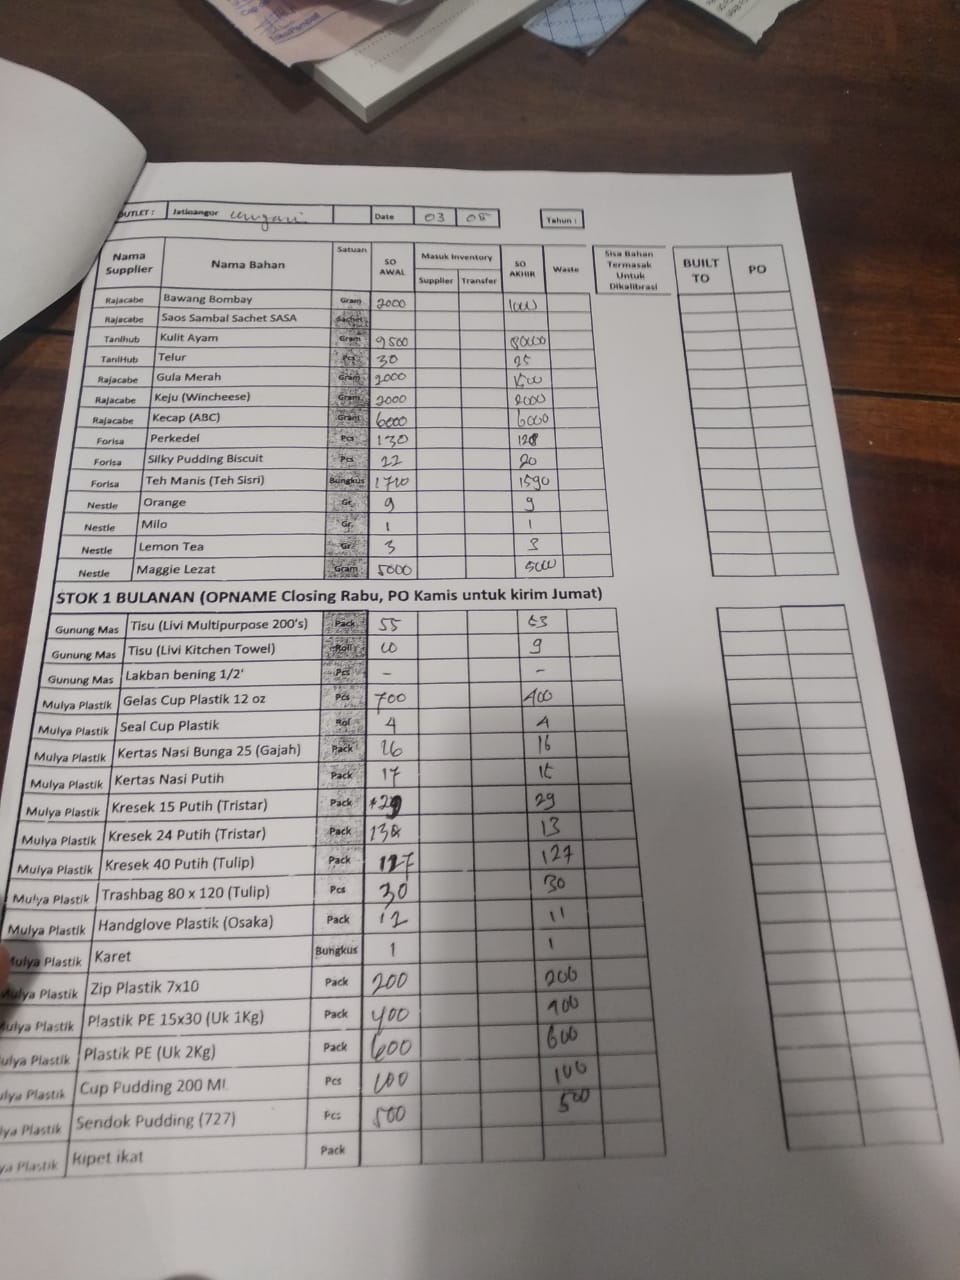 OUTLET : Jatinangor Date 03 05 Tahun :
Nama Supplier Nama Bahan Satuan SO AWAL Masuk Inventory Supplier Transfer SO AKHIR Waste Sisa Bahan Termasak Untuk Dikalibrasi BUILT TO PO
Rajacabe Bawang Bombay Gram 2000 1000
Rajacabe Saos Sambal Sachet SASA Sachet
Tanihub Kulit Ayam Gram 9500 8000
TaniHub Telur Pcs 30 25
Rajacabe Gula Merah Gram 2000 1500
Rajacabe Keju (Wincheese) Gram 2000 2000
Rajacabe Kecap (ABC) Gram 6000 6000
Forisa Perkedel Pcs 130 128
Forisa Silky Pudding Biscuit Pcs 22 20
Forisa Teh Manis (Teh Sisri) Bungkus 1710 1590
Nestle Orange Gr 9 9
Nestle Milo Gr 1 1
Nestle Lemon Tea Gr 3 3
Nestle Maggie Lezat Gram 5000 5000
STOK 1 BULANAN (OPNAME Closing Rabu, PO Kamis untuk kirim Jumat)
Gunung Mas Tisu (Livi Multipurpose 200's) Pack 55 53
Gunung Mas Tisu (Livi Kitchen Towel) Roll 10 9
Gunung Mas Lakban bening 1/2' Pcs - -
Mulya Plastik Gelas Cup Plastik 12 oz Pcs 700 400
Mulya Plastik Seal Cup Plastik Rol 4 4
Mulya Plastik Kertas Nasi Bunga 25 (Gajah) Pack 26 16
Mulya Plastik Kertas Nasi Putih Pack 17
Mulya Plastik Kresek 15 Putih (Tristar) Pack 29 29
Mulya Plastik Kresek 24 Putih (Tristar) Pack 13
Mulya Plastik Kresek 40 Putih (Tulip) Pack 127 127
Mulya Plastik Trashbag 80 x 120 (Tulip) Pcs 30 30
Mulya Plastik Handglove Plastik (Osaka) Pack 12 11
Mulya Plastik Karet Bungkus 1 1
Mulya Plastik Zip Plastik 7x10 Pack 200 200
Mulya Plastik Plastik PE 15x30 (Uk 1Kg) Pack 400 400
ulya Plastik Plastik PE (Uk 2Kg) Pack 600 600
ulya Plastik Cup Pudding 200 Ml Pcs 100 100
lya Plastik Sendok Pudding (727) Pcs 500 500
ya Plastik Ripet ikat Pack